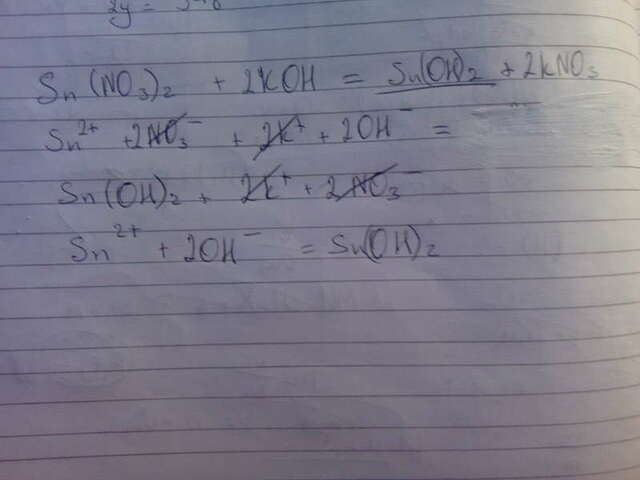 2y =
Sn(NO₃)₂ + 2KOH = Sn(OH)₂ + 2KNO₃
Sn²⁺ + 2NO₃⁻ + 2K⁺ + 2OH⁻ =
Sn(OH)₂ + 2K⁺ + 2NO₃⁻
Sn²⁺ + 2OH⁻ = Sn(OH)₂